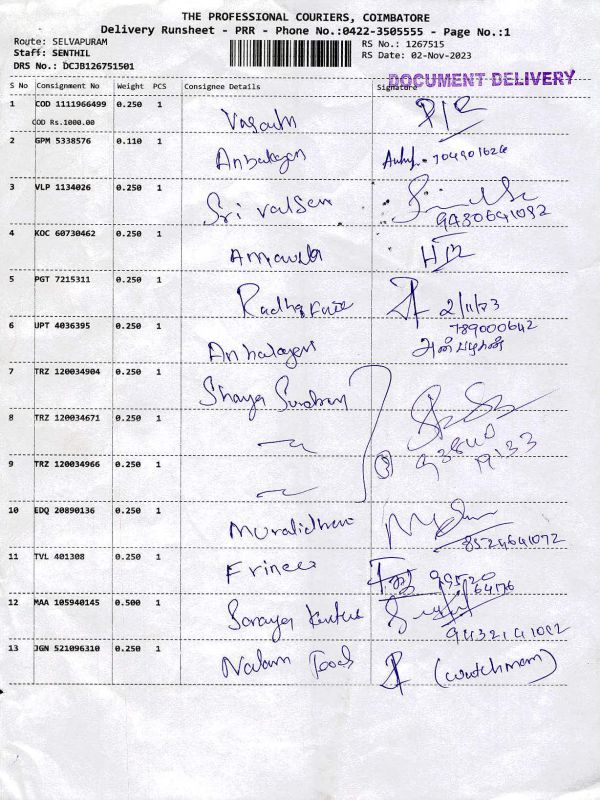 THE PROFESSIONAL COURIERS, COIMBATORE
Delivery Runsheet - PRR - Phone No.:0422-3505555 - Page No.:1
Route: SELVAPURAM
Staff: SENTHIL
DRS No.: DCJB126751501
RS No.: 1267515
RS Date: 02-Nov-2023
DOCUMENT DELIVERY
S No Consignment No Weight PCS Consignee Details Signature
1 COD 1111966499 0.250 1
COD Rs.1000.00
2 GPM 5338576 0.110 1 Anbalagan
3 VLP 1134026 0.250 1 Sri Valsen
9480641092
4 KOC 60730462 0.250 1
5 PGT 7215311 0.250 1 2/11/23
789000642
6 UPT 4036395 0.250 1 Anbalagan அன்பழகன்
7 TRZ 120034904 0.250 1
8 TRZ 120034671 0.250 1
9 TRZ 120034966 0.250 1 3
10 EDQ 20890136 0.250 1 Muralidharan
8524641072
11 TVL 401308 0.250 1 99520
64176
12 MAA 105940145 0.500 1
9432141092
13 JGN 521096310 0.250 1 Nalam Foods (watchman)